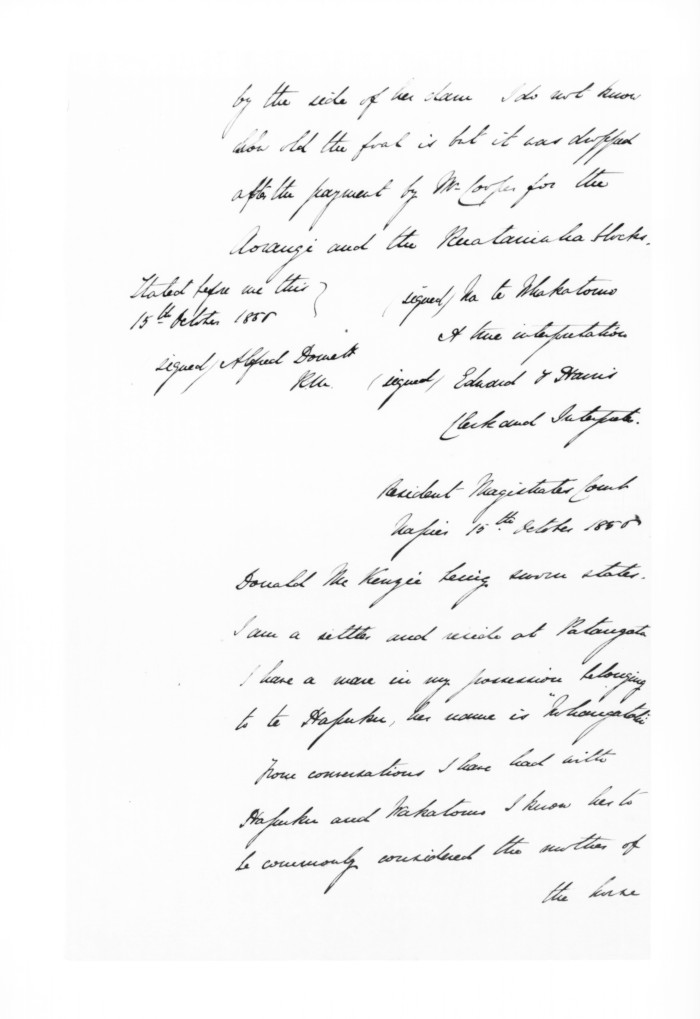 by the side of her dam I do not know
how old the foal is but it was dropped
after the payment by Mr Cooper for the
Aorangi and the Ruataniwha blocks.
Stated before me this
15th October 185
signed) Alfred Domett
R.M.
(signed) Na te Whakatomo
A true interpretation
(signed) Edward Harris
Clerk and Interpreter.
Resident Magistrates Court
Napier 15th October 185
Donald McKenzie being sworn states.
I am a settler and reside at Patangata
I have a mare in my possession belonging
to te Hapuku, her name is "
From conversations I have had with
Hapuku and Wakatomo I know her to
be commonly considered the mother of
the horse